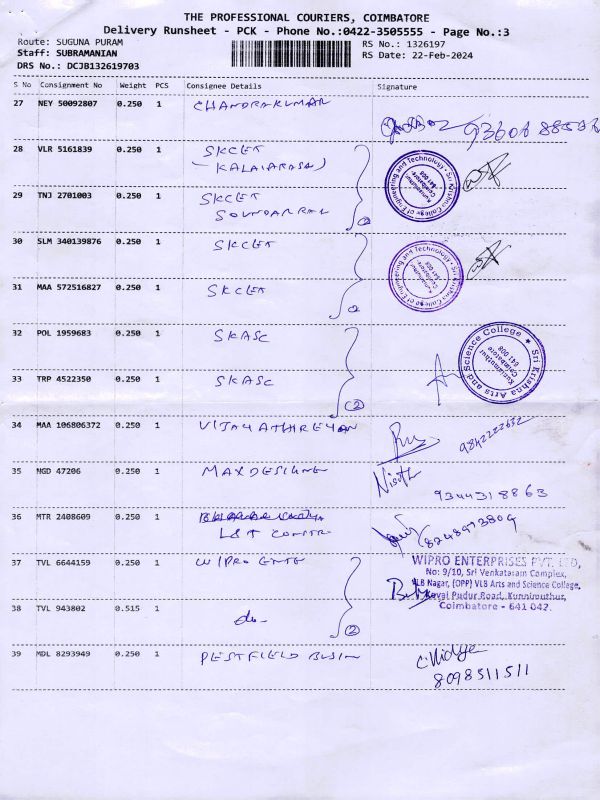 THE PROFESSIONAL COURIERS, COIMBATORE
Delivery Runsheet - PCK - Phone No.:0422-3505555 - Page No.:3
Route: SUGUNA PURAM RS No.: 1326197
Staff: SUBRAMANIAN RS Date: 22-Feb-2024
DRS No.: DCJB132619703
S No Consignment No Weight PCS Consignee Details Signature
27 NEY 50092807 0.250 1 CHANDRAKUMAR
28 VLR 5161839 0.250 1 SKCET
KALAIARASAJ
29 TNJ 2701003 0.250 1 SKCET
2
30 SLM 340139876 0.250 1 SKCET
31 MAA 572516827 0.250 1 SKCET
2
Sri Krishna College of Engineering and Technology
Kuniamuthur,
Coimbatore
641 008
Sri Krishna College of Engineering and Technology
Kuniamuthur,
Coimbatore
641 008
32 POL 1959683 0.250 1 SKASC
33 TRP 4522350 0.250 1 SKASC
(2)
Sri Krishna Arts and Science College
Kuniamuthur
Coimbatore
641 008
34 MAA 106806372 0.250 1 VIJAYATHREYAN
9842222632
35 NGD 47206 0.250 1 MAXDESIGNE
Nisoth
9344318863
36 MTR 2408609 0.250 1
L&T CONSTR
8248973809
37 TVL 6644159 0.250 1 WIPRO ENTE
38 TVL 943802 0.515 1 do-
2
WIPRO ENTERPRISES PVT. LTD,
No: 9/10, Sri Venkatasam Complex,
VLB Nagar, (OPP) VLB Arts and Science College,
Kovai Pudur Road, Kunnimuthur,
Coimbatore - 641 042.
39 MDL 8293949 0.250 1 PESTFIELD BUSIN
C. Vidya
8098511511